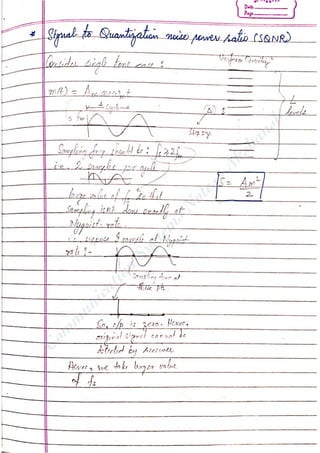 Date
Page
* Signal to Quantization noise power ratio (SQNR)
Consider single tone case : Uniform Quantizer
m(t) = Am cos ωmt
1 cycle
Δ :
L levels
Step size
Sampling freq. should be : fs ≥ 2fm
i.e. 2 samples per cycle
S = Am²/2
large value of fs so that
sampling isn't done exactly at
Nyquist rate.
i.e. suppose I sample at Nyquist
rate :-
Sampling done at
these pts
So, o/p is zero. Hence,
original signal cannot be
detected by receiver
Hence, we take larger value
of fs